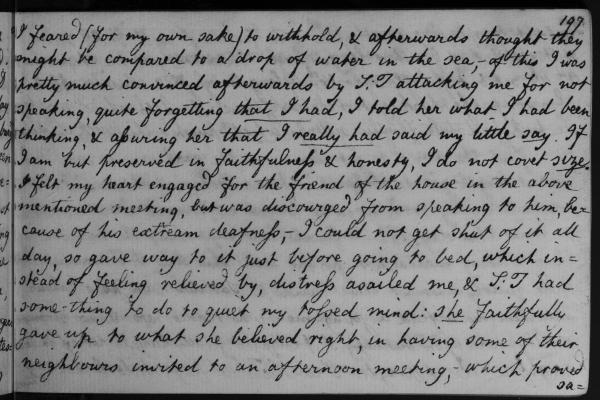 197
I feared (for my own sake) to withhold, & afterwards thought they
might be compared to a drop of water in the sea,- of this I was
pretty much convinced afterwards by S.T attacking me for not
speaking, quite forgetting that I had, I told her what I had been
thinking, & assuring her that I really had said my little say. If
I am but preserved in faithfulness & honesty, I do not covet size.
I felt my heart engaged for the friend of the house in the above
mentioned meeting, but was discourged from speaking to him, be=
cause of his extream deafness,- I could not get shut of it all
day, so gave way to it just before going to bed, which in=
stead of feeling relieved by, distress asailed me, & S.T had
some-thing to do to quiet my tossed mind: she faithfully
gave up to what she believed right, in having some of their
neighbours invited to an afternoon meeting,- which proved
sa=